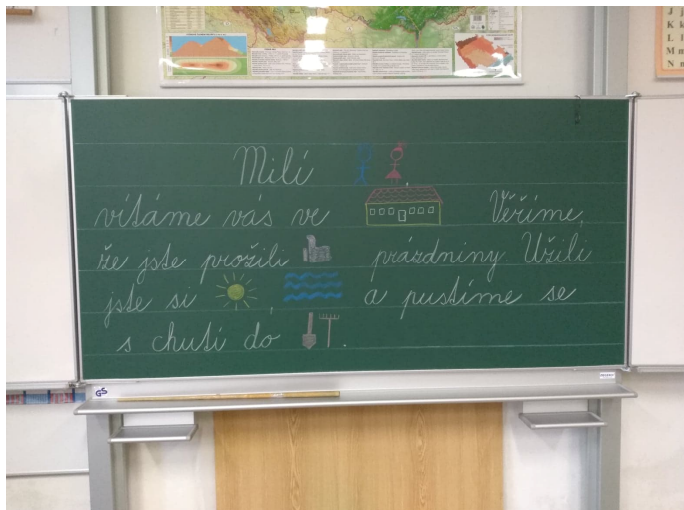 Milí
vítáme vás ve Věříme,
že jste prožili prázdniny Užili
jste si , a pustíme se
s chutí do .
GS
J j
K k
L l
M m
N n